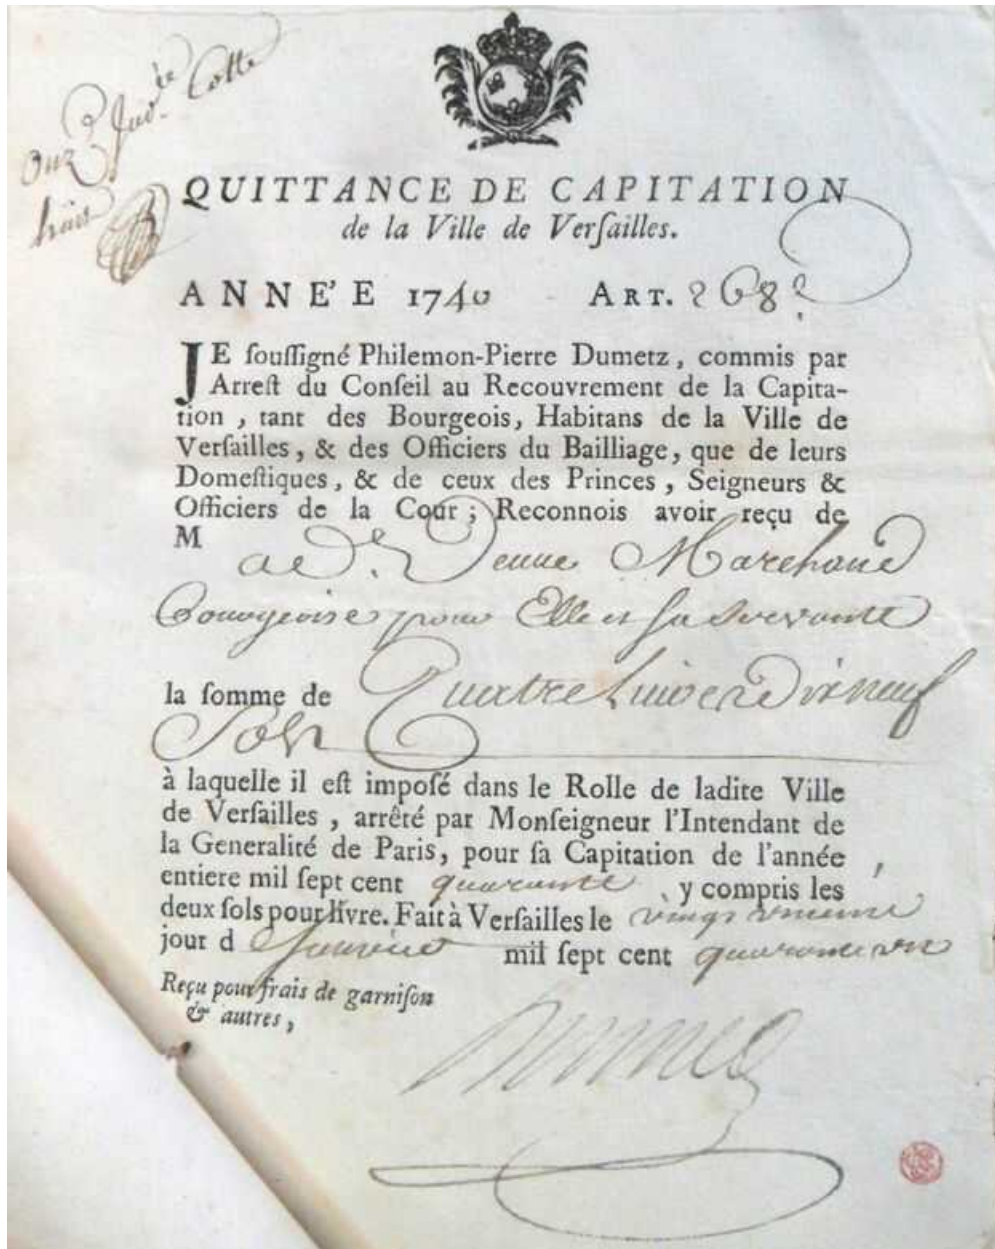 Cotte
QUITTANCE DE CAPITATION
de la Ville de Verſailles.
ANNE'E 1740 ART. 268
JE ſouſſigné Philemon-Pierre Dumetz, commis par
Arreſt du Conſeil au Recouvrement de la Capita-
tion, tant des Bourgeois, Habitans de la Ville de
Verſailles, & des Officiers du Bailliage, que de leurs
Domeſtiques, & de ceux des Princes, Seigneurs &
Officiers de la Cour; Reconnois avoir reçu de
M
Marchand
Bourgeoise pour Elle et sa Servante
la ſomme de Quatre Livres Dixneuf
Sols
à laquelle il eſt impoſé dans le Rolle de ladite Ville
de Verſailles, arrêté par Monſeigneur l'Intendant de
la Generalité de Paris, pour ſa Capitation de l'année
entiere mil ſept cent quarante, y compris les
deux ſols pour livre. Fait à Verſailles le vingt
jour d Janvier mil ſept cent quarante un
Reçu pour frais de garniſon
& autres,